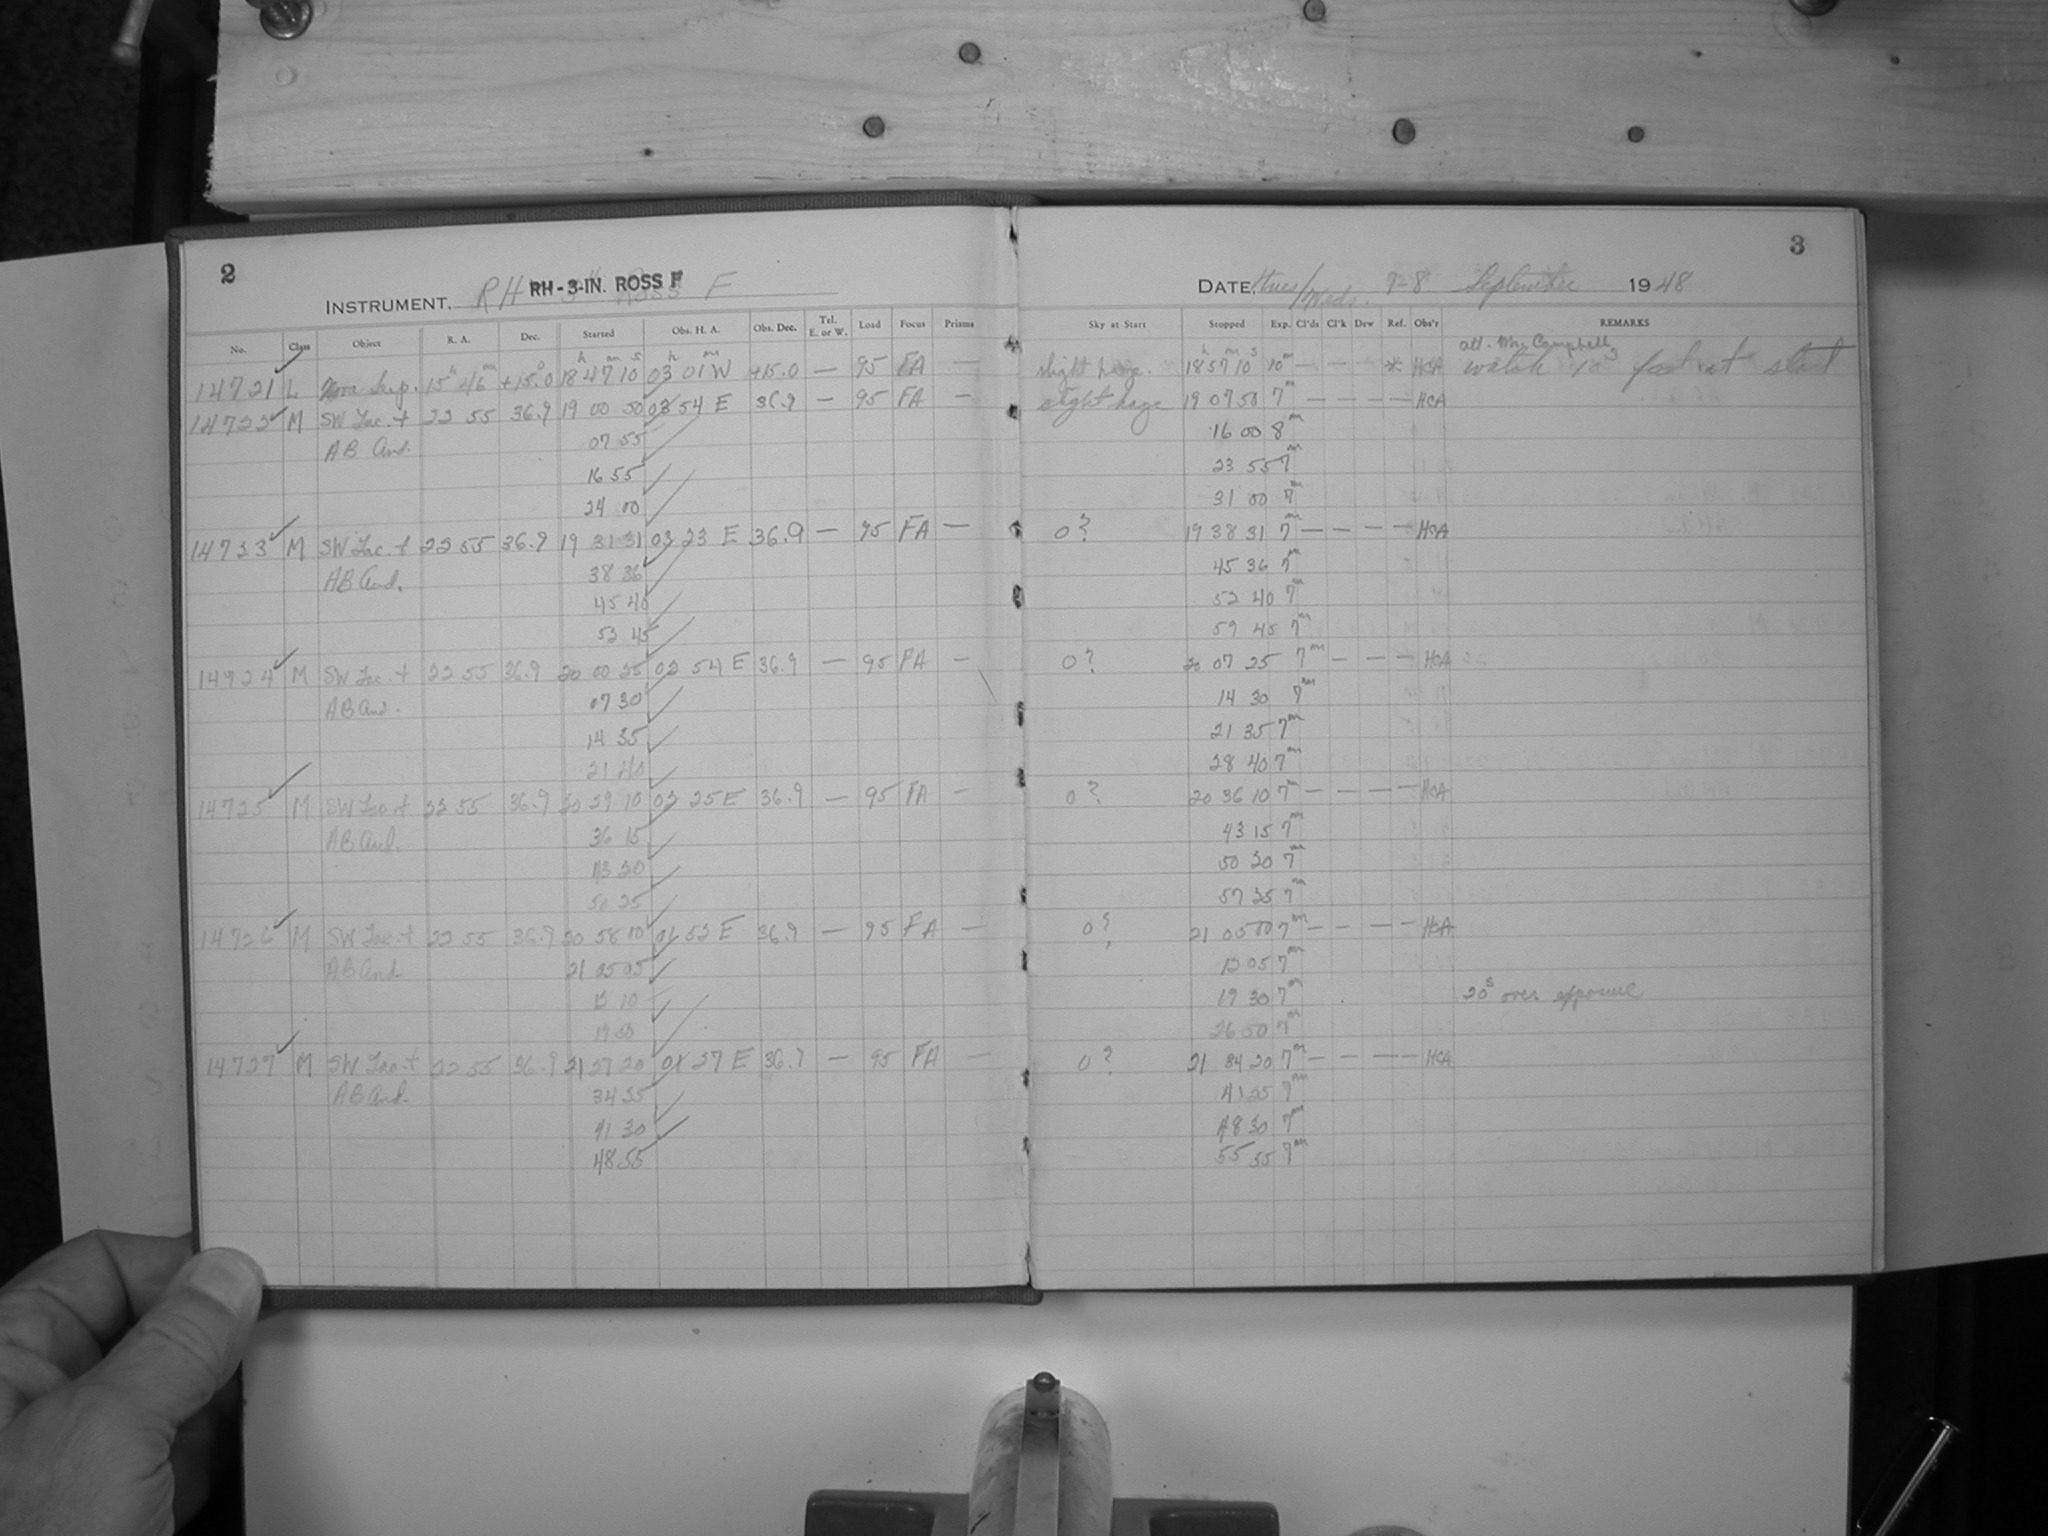 2
INSTRUMENT. RH-3-IN. ROSS F
No. Class Object R. A. Dec. Started Obs. H. A. Obs. Dec. Tel. E. or W. Load Focus Prisms
h m s h m
14721 L Nova Serp. 15h 46m +15.0 18 47 10 03 01 W +15.0 — 95 FA —
14722 M SW Lac. + 22 55 36.9 19 00 50 03 54 E 36.9 — 95 FA —
AB And. 07 55
16 55
24 00
14723 M SW Lac. + 22 55 36.9 19 31 31 03 23 E 36.9 — 95 FA —
AB And. 38 36
45 40
52 45
14724 M SW Lac. + 22 55 36.9 20 00 25 02 54 E 36.9 — 95 FA —
AB And. 07 30
14 35
21 40
14725 M SW Lac. + 22 55 36.9 20 29 10 02 25 E 36.9 — 95 FA —
AB And. 36 15
43 20
50 25
14726 M SW Lac. + 22 55 36.9 20 58 00 01 52 E 36.9 — 95 FA —
AB And. 21 05 05
12 10
19 50
14727 M SW Lac. + 22 55 36.9 21 27 20 01 27 E 36.9 — 95 FA —
AB And. 34 25
41 30
48 55
3
DATE, Tues/Weds. 7-8 September 1948
Sky at Start Stopped Exp. Cl'ds Cl'k Dew Ref. Obs'r REMARKS
att. Mrs Campbell
slight haze. 18 57 10 10m — — — * HCA watch 10s fast at start
slight haze 19 07 50 7m — — — — HCA
16 00 8m
23 55 7m
31 00 7m
0? 19 38 31 7m — — — — HCA
45 36 7m
52 40 7m
59 45 7m
0? 20 07 25 7m — — — HCA
14 30 7m
21 35 7m
28 40 7m
0? 20 36 10 7m — — — — HCA
43 15 7m
50 20 7m
57 25 7m
0? 21 05 00 7m — — — — HCA
12 05 7m
19 30 7m 20s over exposure
26 50 7m
0? 21 34 20 7m — — — — HCA
41 25 7m
48 30 7m
55 55 7m